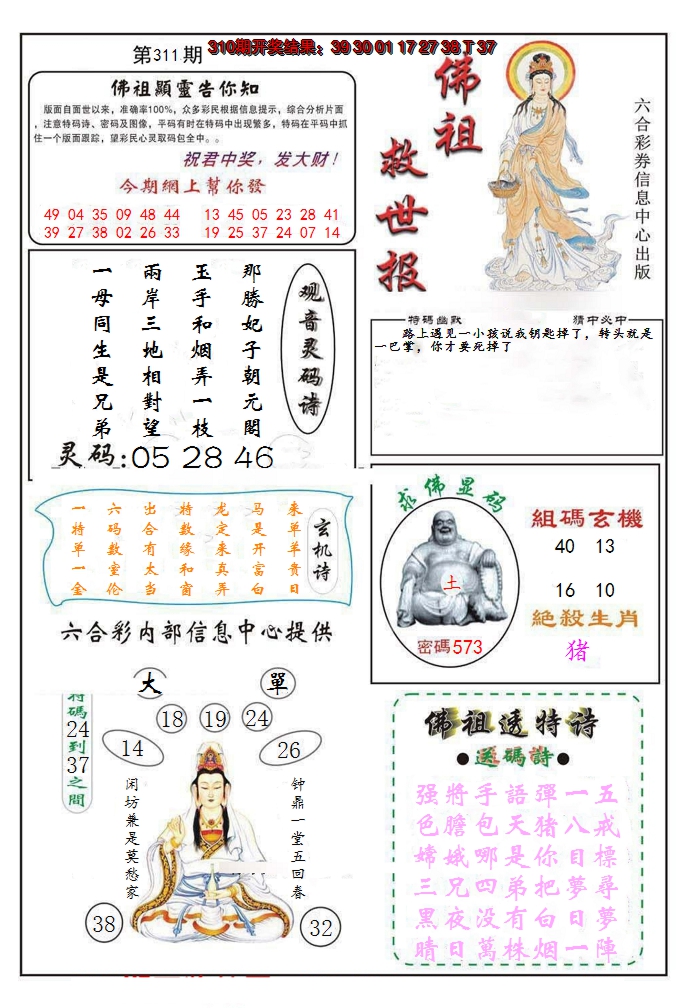 第311期
310期开奖结果：39 30 01 17 27 38 T 37
佛祖救世报
六合彩券信息中心出版
佛祖顯靈告你知
版面自面世以来，准确率100%，众多彩民根据信息提示，综合分析片面
，注意特码诗、密码及图像，平码有时在特码中出现繁多，特码在平码中抓
住一个版面跟踪，望彩民心灵取码包全中。。
祝君中奖，发大财！
今期網上幫你發
49 04 35 09 48 44 13 45 05 23 28 41
39 27 38 02 26 33 19 25 37 24 07 14
观音灵码诗
那勝妃子朝元閣
玉手和烟弄一枝
兩岸三地相對望
一母同生是兄弟
灵码:05 28 46
特碼幽默
猜中必中
路上遇见一小孩说我钥匙掉了，转头就是
一巴掌，你才要死掉了
玄机诗
来单羊贵日
马是开富白
龙定来真弄
特数缘和窗
出合有太当
六码数室伦
一特单一金
六合彩内部信息中心提供
求佛显码
土
密碼573
組碼玄機
40 13
16 10
絶殺生肖
猪
大
單
特碼24到37之間
18 19 24
14
26
闲坊兼是莫愁家
钟鼎一堂五回春
38
32
佛祖透特诗
●送碼詩●
强將手語彈一五
色膽包天猪八戒
嫦娥哪是你目標
三兄四弟把夢尋
黑夜没有白日夢
晴日萬株烟一陣